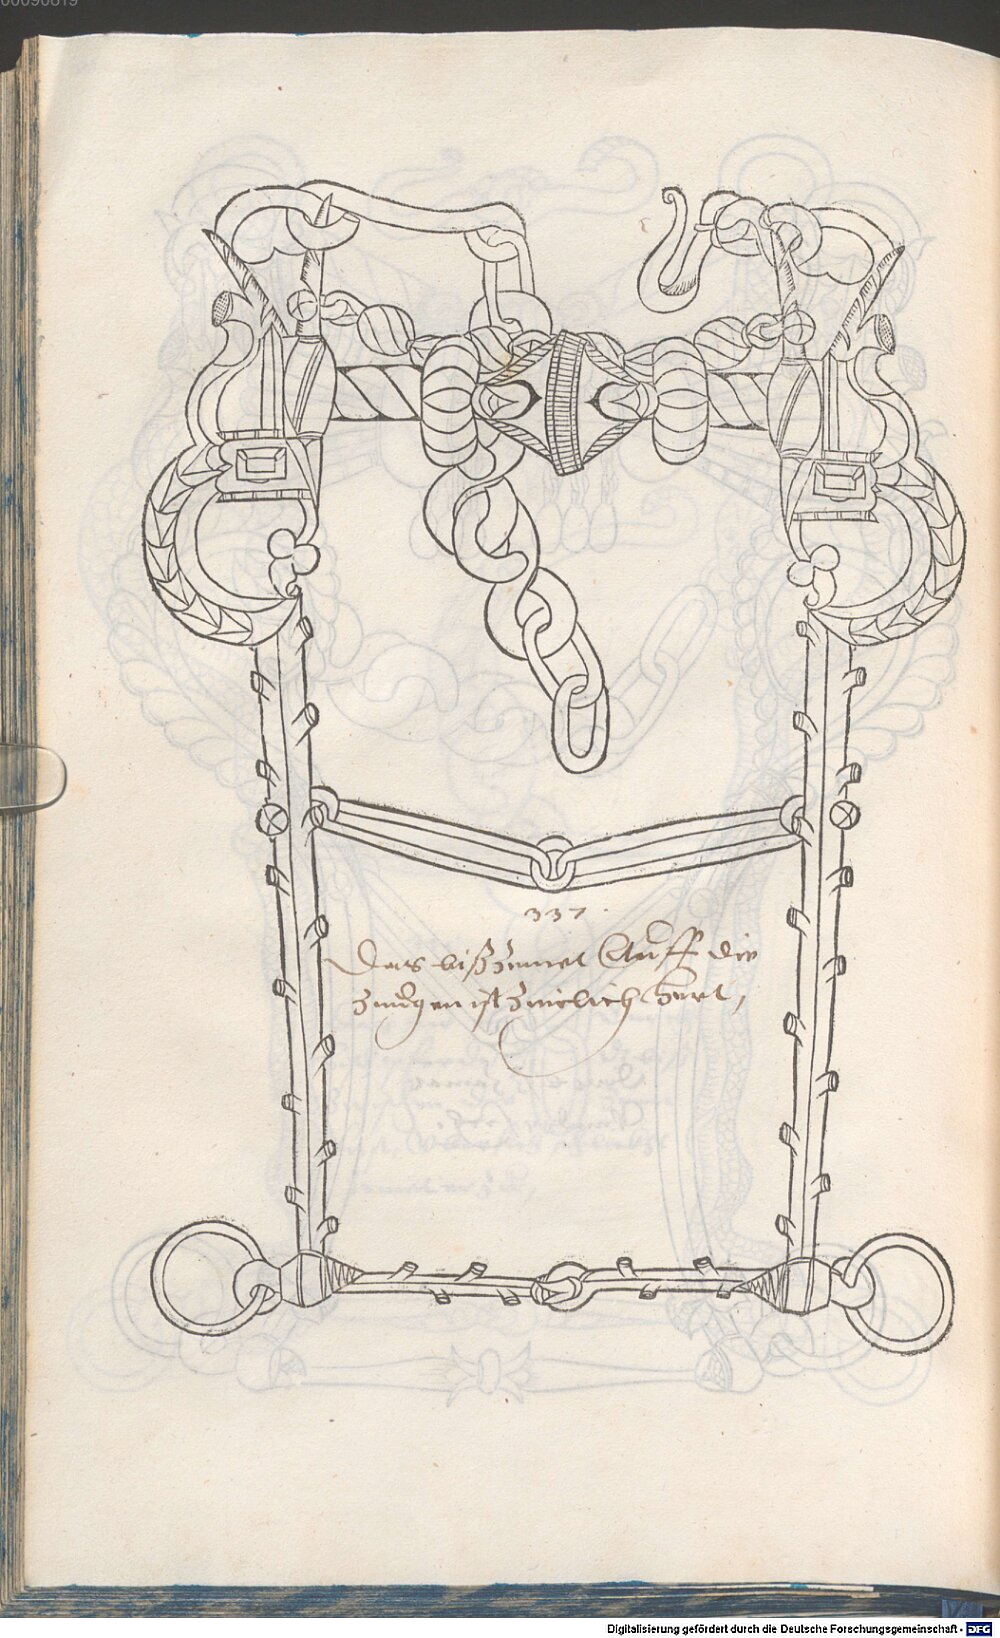 00090819
337.
Das bißZumel Auff die
Zungen ist Zimlich Hert,
Digitalisierung gefördert durch die Deutsche Forschungsgemeinschaft - DFG